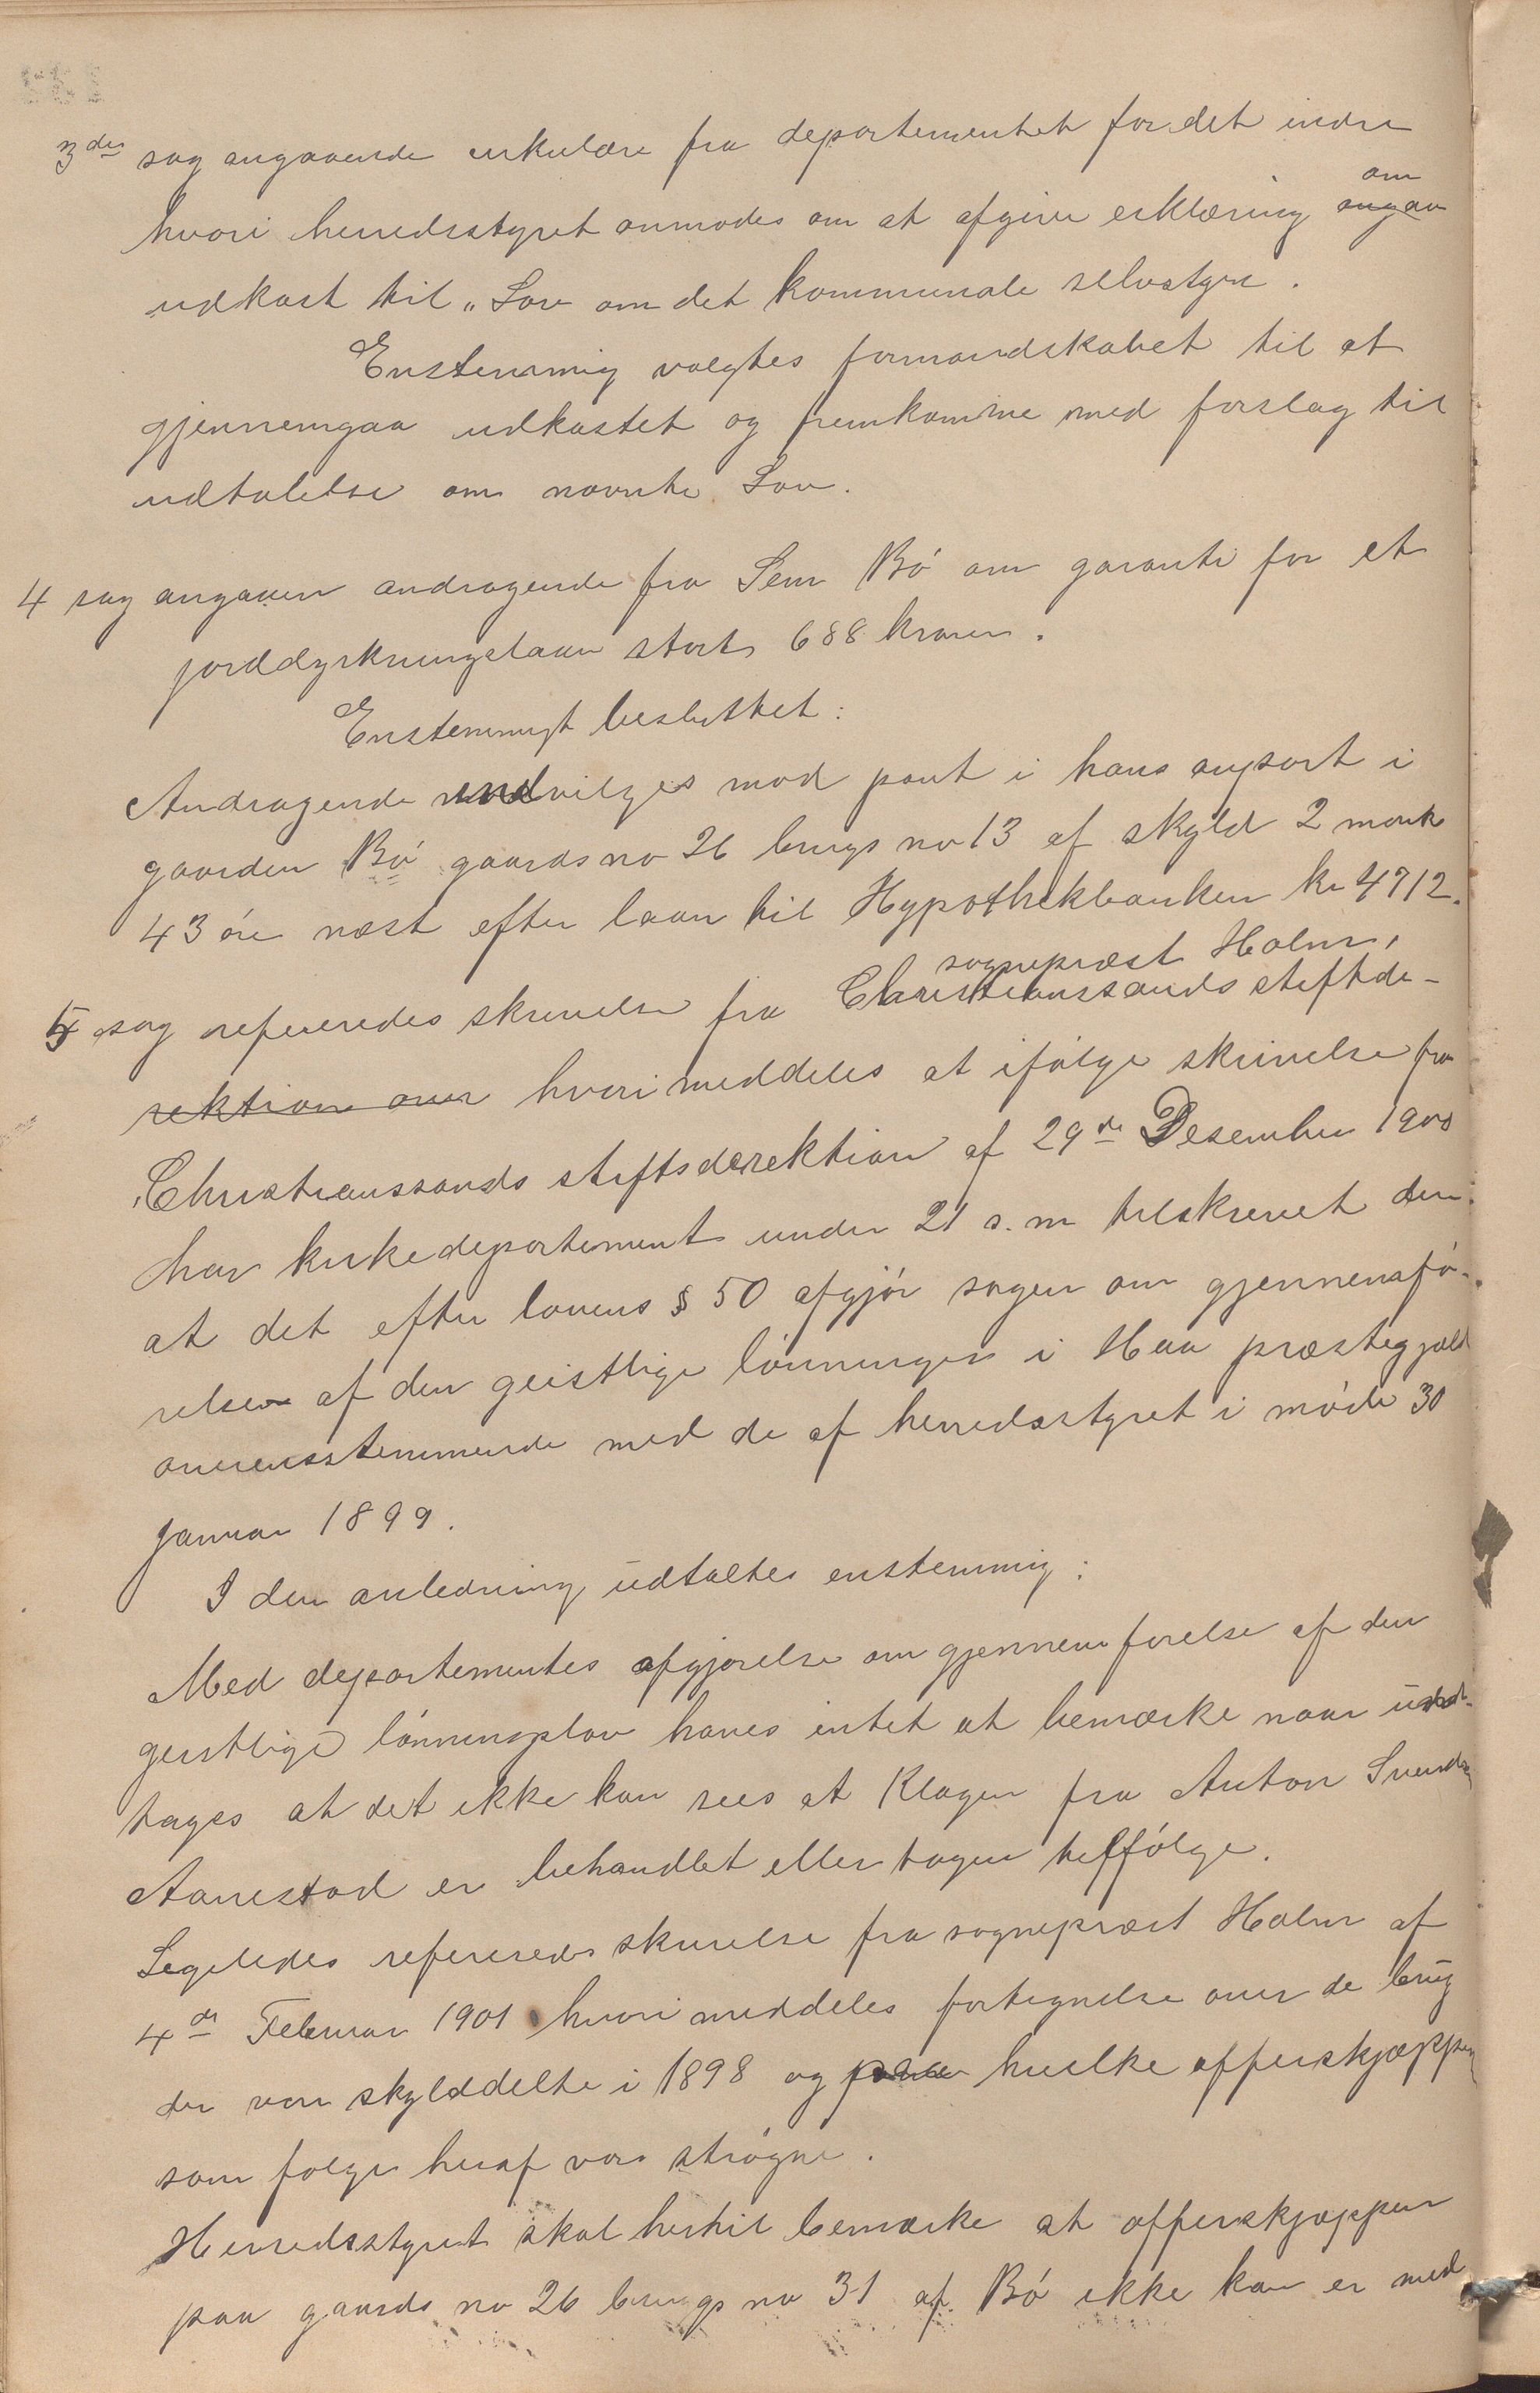 3die sag angaaende cirkulære fra departementet for det indre
hvori herredsstyret anmodes om at afgive erklæring angaa om
udkast til „Lov om det kommunale selvstyre.
Enstemmig valgtes formandskabet til at
gjennemgaa udkastet og fremkomme med forslag til
udtalelse om nævnte Lov.
4 sag angaaen andragende fra Sem Bö om garanti for et
jorddyrkningslaan stort 688 kroner.
Enstemmigt besluttet:
Andragende indvilges mod pant i hans anpart i
gaarden Bö gaards no 26 brugs no 13 af skyld 2 mark
43 öre næst efter laan til Hypothekbanken kr 4712.
sogneprest Holm,
5 sag refereredes skrivelse fra Christianssands stiftdi-
rektion over hvori meddeles at ifölge skrivelse fra
Christianssands stiftsderektion af 29de Desember 1900
har kirkedepartement under 21 s.m tilskrevet den
at det efter lovens § 50 afgjör sagen om gjennemfö-
relse af den geistlige lönninger i Haa præstegjæld
overensstemmende med de af herredsstyret i möde 30
Januar 1899.
I den anledning udtaltes enstemmig:
Med departementes afgjørelse om gjennemførelse af den
geistlige lönningslov haves intet at bemærke naar und-
tages at det ikke kan sees at Klagen fra Anton Svends
Aarrestad er behandlet eller tagen tilfölge.
Ligeledes refereredes skrivelse fra sogneprest Holm af
4de Februar 1901 hvori meddeles fortegnelse over de brug
der var skylddelte i 1898 og paa hvilke offerskjæppen
som følge heraf var strögne.
Herredsstyret skal hertil bemærke at offerskjæppen
paa gaards no 26 brugs no 31 af Bö ikke kan er med